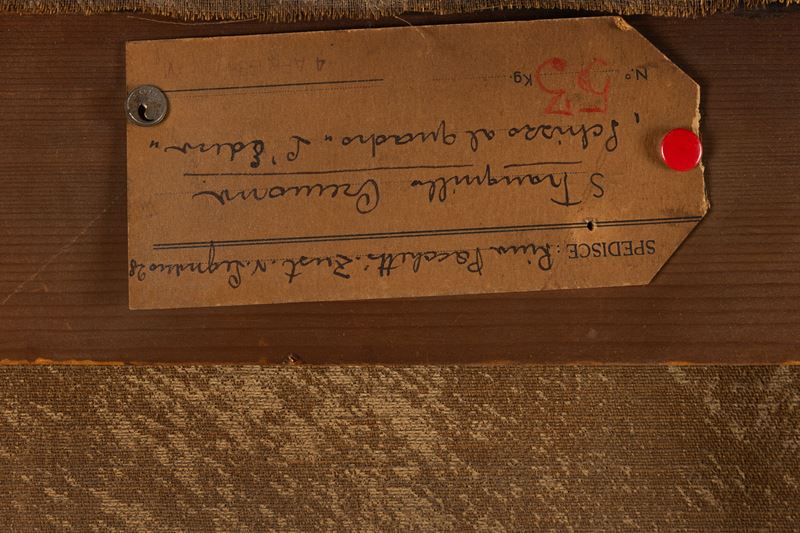 SPEDISCE: Rina Pacchetti. Zust. V. Legnano 28
S Tranquillo Cremona
"Schizzo al quadro "L'Edera"
N.° 53 Kg.